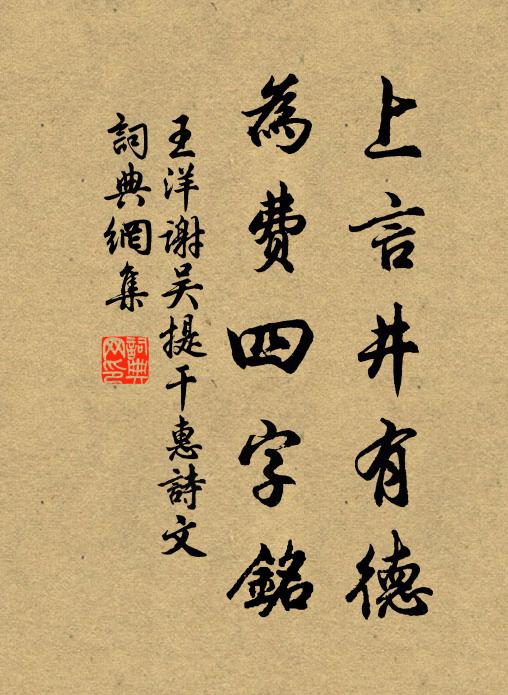 上言井有德
為費四字銘
王洋謝吳提干惠詩文
詞典網集
詞典网印